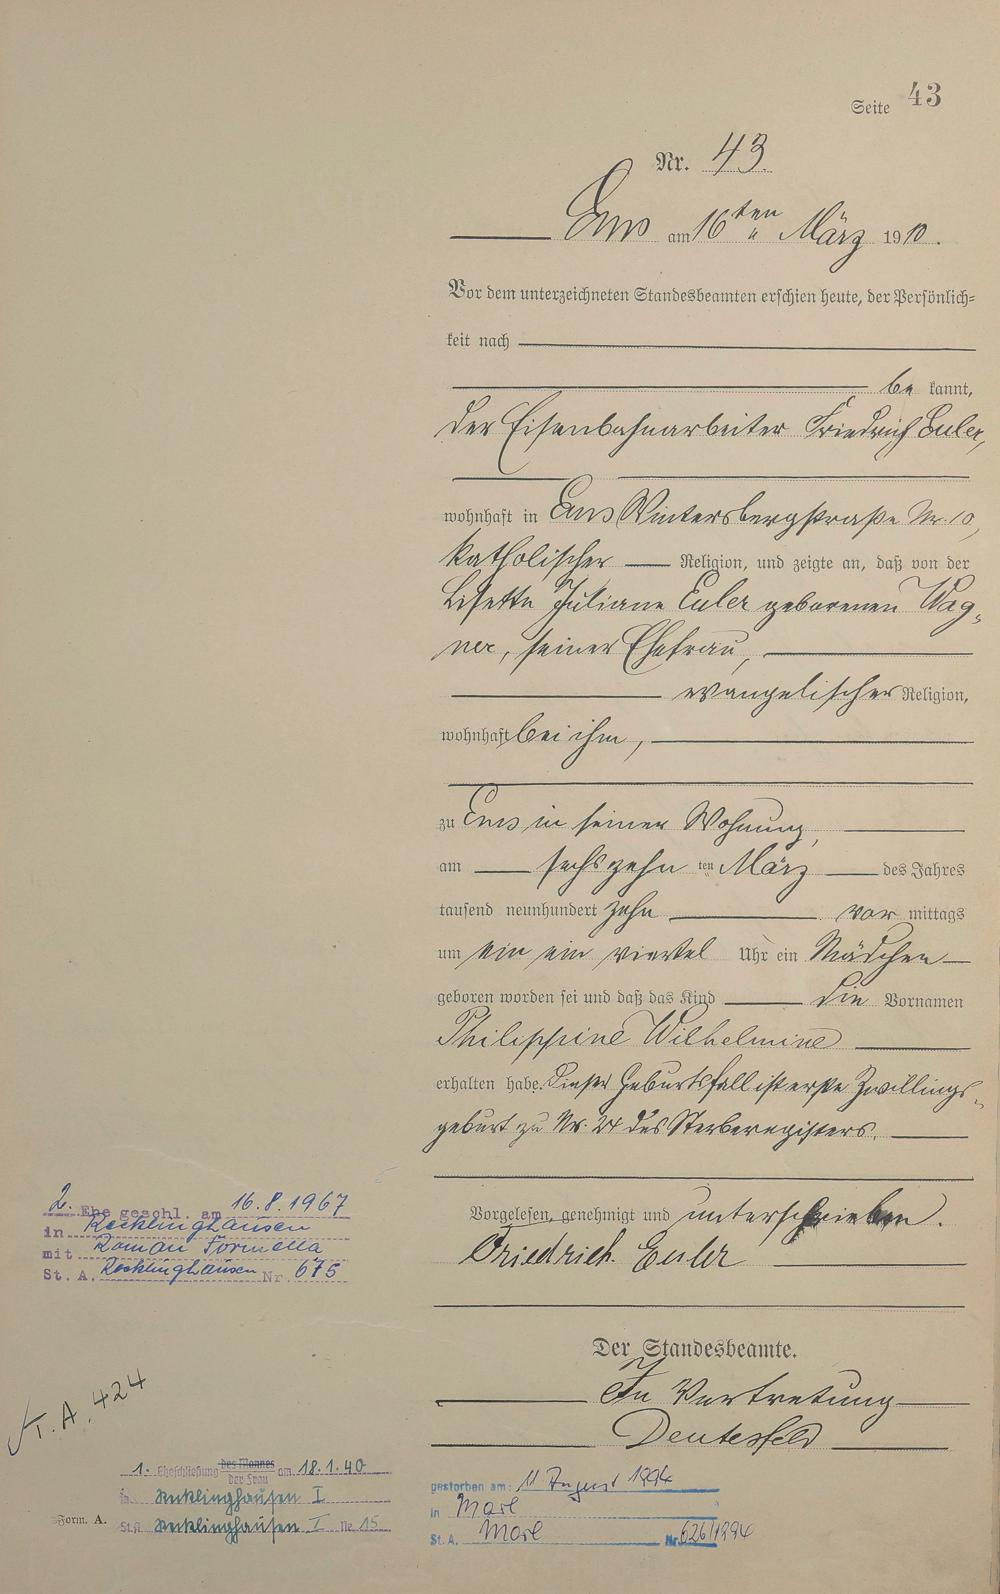 Seite 43
Nr. 43.
Ems am 16ten März 1910.
Vor dem unterzeichneten Standesbeamten erschien heute, der Persönlich=
keit nach
be kannt,
der Eisenbahnarbeiter Friedrich Euler,
wohnhaft in Ems Wintersbergstraße Nr. 10,
katholischer Religion, und zeigte an, daß von der
Lisette Juliane Euler geborenen Wag-
ner, seiner Ehefrau,
evangelischer Religion,
wohnhaft bei ihm,
zu Ems in seiner Wohnung,
am sechszehn ten März des Jahres
tausend neunhundert zehn vor mittags
um ein ein viertel Uhr ein Mädchen
geboren worden sei und daß das Kind die Vornamen
Philippine Wilhelmine
erhalten habe. Dieser Geburtsfall ist erste Zwillings-
geburt zu Nr. 24 des Sterberegisters.
Vorgelesen, genehmigt und unterschrieben.
Friedrich Euler
Der Standesbeamte.
In Vertretung
Deutesfeld
2. Ehe geschl. am 16.8.1967
in Recklinghausen
mit Roman Formella
St. A. Recklinghausen Nr. 675
T. A. 424
1. Eheschließung des Mannes der Frau am 18.1.40
in Recklinghausen I
St.A. Recklinghausen I Nr. 15
Form. A.
gestorben am: 11 August 1994
in Marl
St. A. Marl Nr. 626/1994